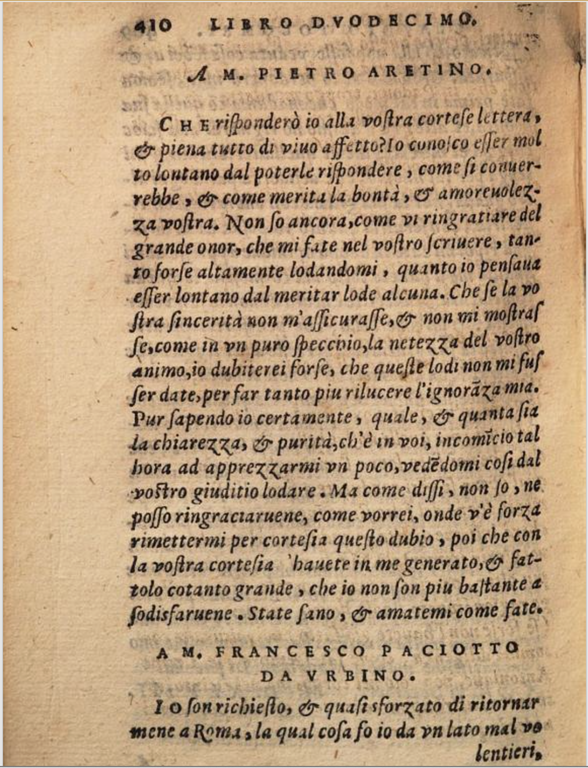 410 LIBRO DVODECIMO.
A M. PIETRO ARETINO.
CHE riſponderò io alla voſtra corteſe lettera,
& piena tutto di viuo affetto? Io conoſco eſſer mol
to lontano dal poterle riſpondere, come ſi conuer-
rebbe, & come merita la bontà, & amoreuolez-
za voſtra. Non ſo ancora, come vi ringratiare del
grande onor, che mi fate nel voſtro ſcriuere, tan-
to forſe altamente lodandomi, quanto io penſaua
eſſer lontano dal meritar lode alcuna. Che ſe la vo
ſtra ſincerità non m'aſſicuraſſe, & non mi moſtraſ
ſe, come in vn puro ſpecchio, la netezza del voſtro
ànimo, io dubiterei forſe, che queſte lodi non mi fuſ
ſer date, per far tanto piu rilucere l'ignorãza mia.
Pur ſapendo io certamente, quale, & quanta ſia
la chiarezza, & purità, ch'è in voi, incomĩcio tal
hora ad apprezzarmi vn poco, vedẽdomi coſi dal
voſtro giuditio lodare. Ma come diſſi, non ſo, ne
poſſo ringraciaruene, come vorrei, onde v'è forza
rimettermi per corteſia queſto dubio, poi che con
la voſtra corteſia 'hauete in me generato, & fat-
tolo cotanto grande, che io non ſon piu baſtante a
ſodisfaruene. State ſano, & amatemi come fate.
A M. FRANCESCO PACIOTTO
DA VRBINO.
IO ſon richieſto, & quaſi sforzato di ritornar
mene a Roma, la qual coſa fo io da vn lato mal vo
lentieri,